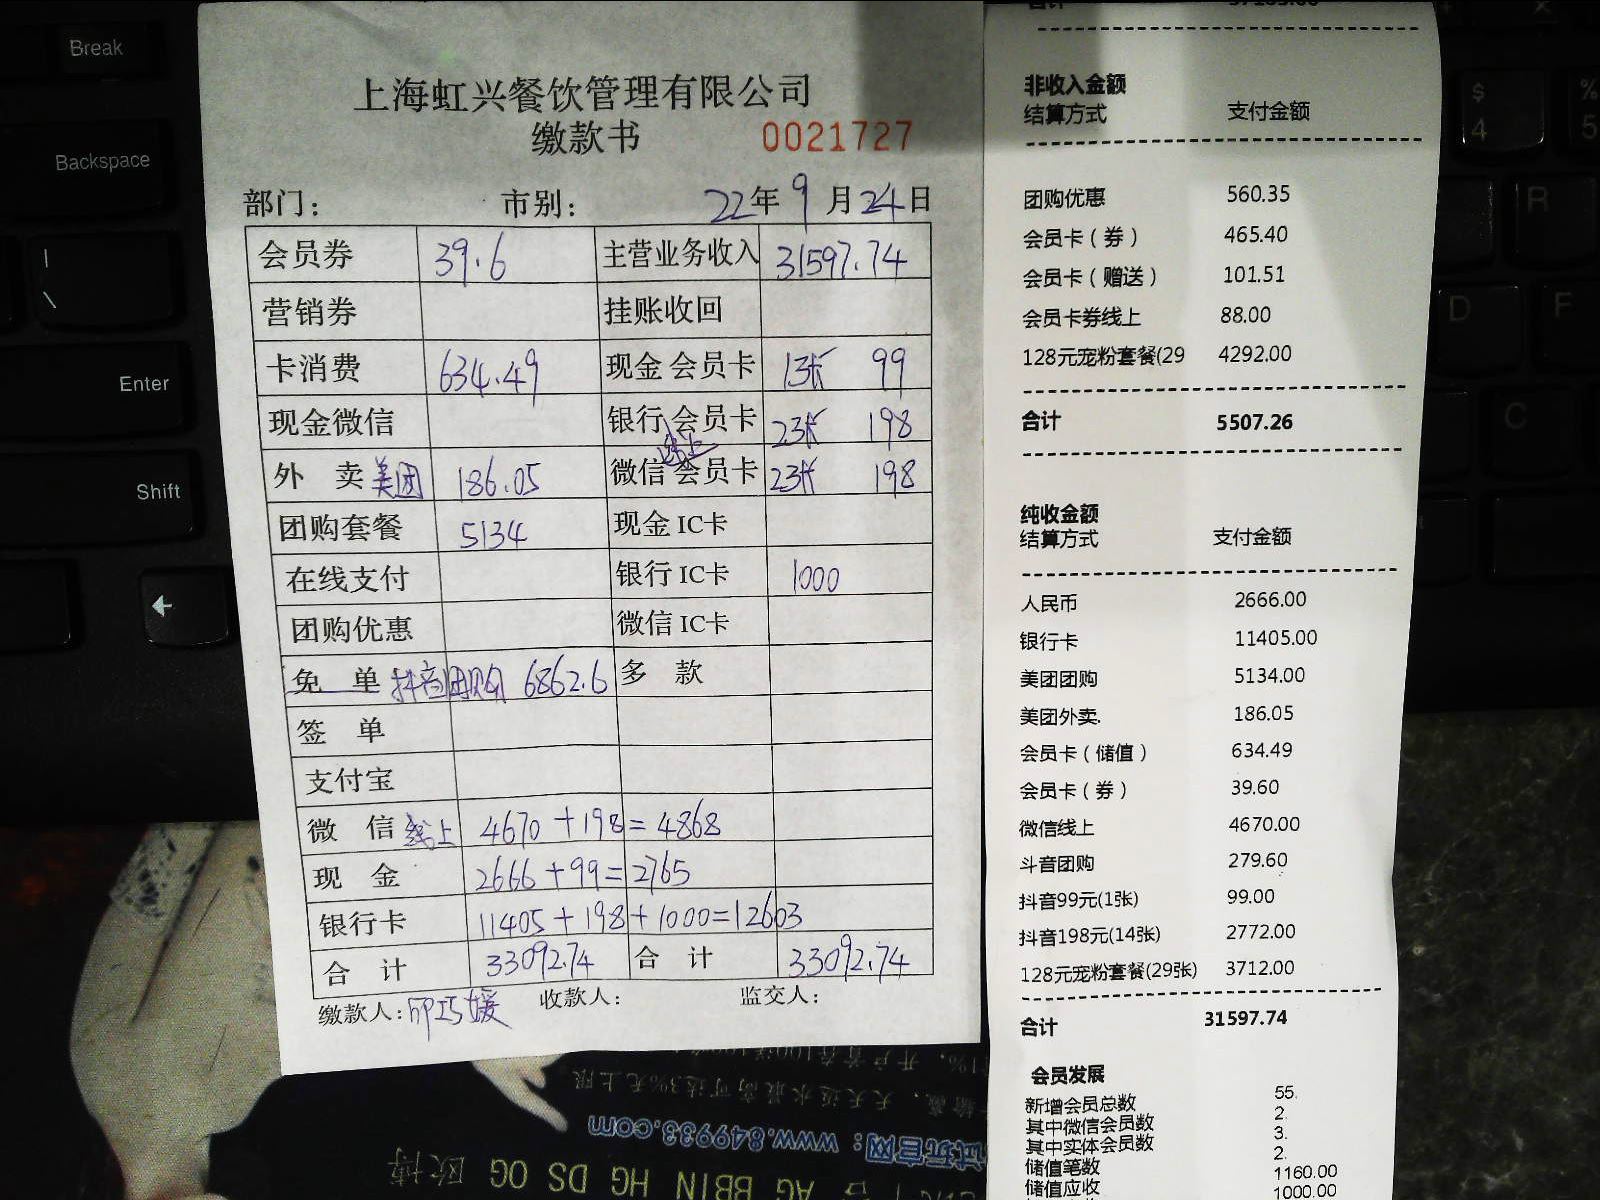 上海虹兴餐饮管理有限公司
缴款书 0021727
部门： 市别： 22年 9月 24日
会员券 39.6 主营业务收入 31597.74
营销券 挂账收回
卡消费 634.49 现金 会员卡 1张 99
现金微信 银行 会员卡 2张 198
外 卖 美团 186.05 微信 线上 会员卡 2张 198
团购套餐 5134 现金 IC卡
在线支付 银行 IC卡 1000
团购优惠 微信 IC卡
免 单 抖音团购 6862.6 多 款
签 单
支付宝
微 信 线上 4670+198=4868
现 金 2666+99=2765
银行卡 11405+198+1000=12603
合 计 33092.74 合 计 33092.74
缴款人： 收款人： 监交人：
合计
非收入金额
结算方式 支付金额
团购优惠 560.35
会员卡（券） 465.40
会员卡（赠送） 101.51
会员卡券线上 88.00
128元宠粉套餐(29 4292.00
合计 5507.26
纯收金额
结算方式 支付金额
人民币 2666.00
银行卡 11405.00
美团团购 5134.00
美团外卖. 186.05
会员卡（储值） 634.49
会员卡（券） 39.60
微信线上 4670.00
斗音团购 279.60
抖音99元(1张) 99.00
抖音198元(14张) 2772.00
128元宠粉套餐(29张) 3712.00
合计 31597.74
会员发展
新增会员总数 55.
其中微信会员数 2.
其中实体会员数 3.
储值笔数 2.
储值应收 1160.00
1000.00
Break
Backspace
|
\
Enter
Shift
←
$
4
%
5
R
D
F
C
天天返水最高可达3%无上限
试玩官网：www.849933.com
AG BBIN HG DS OG 欧博